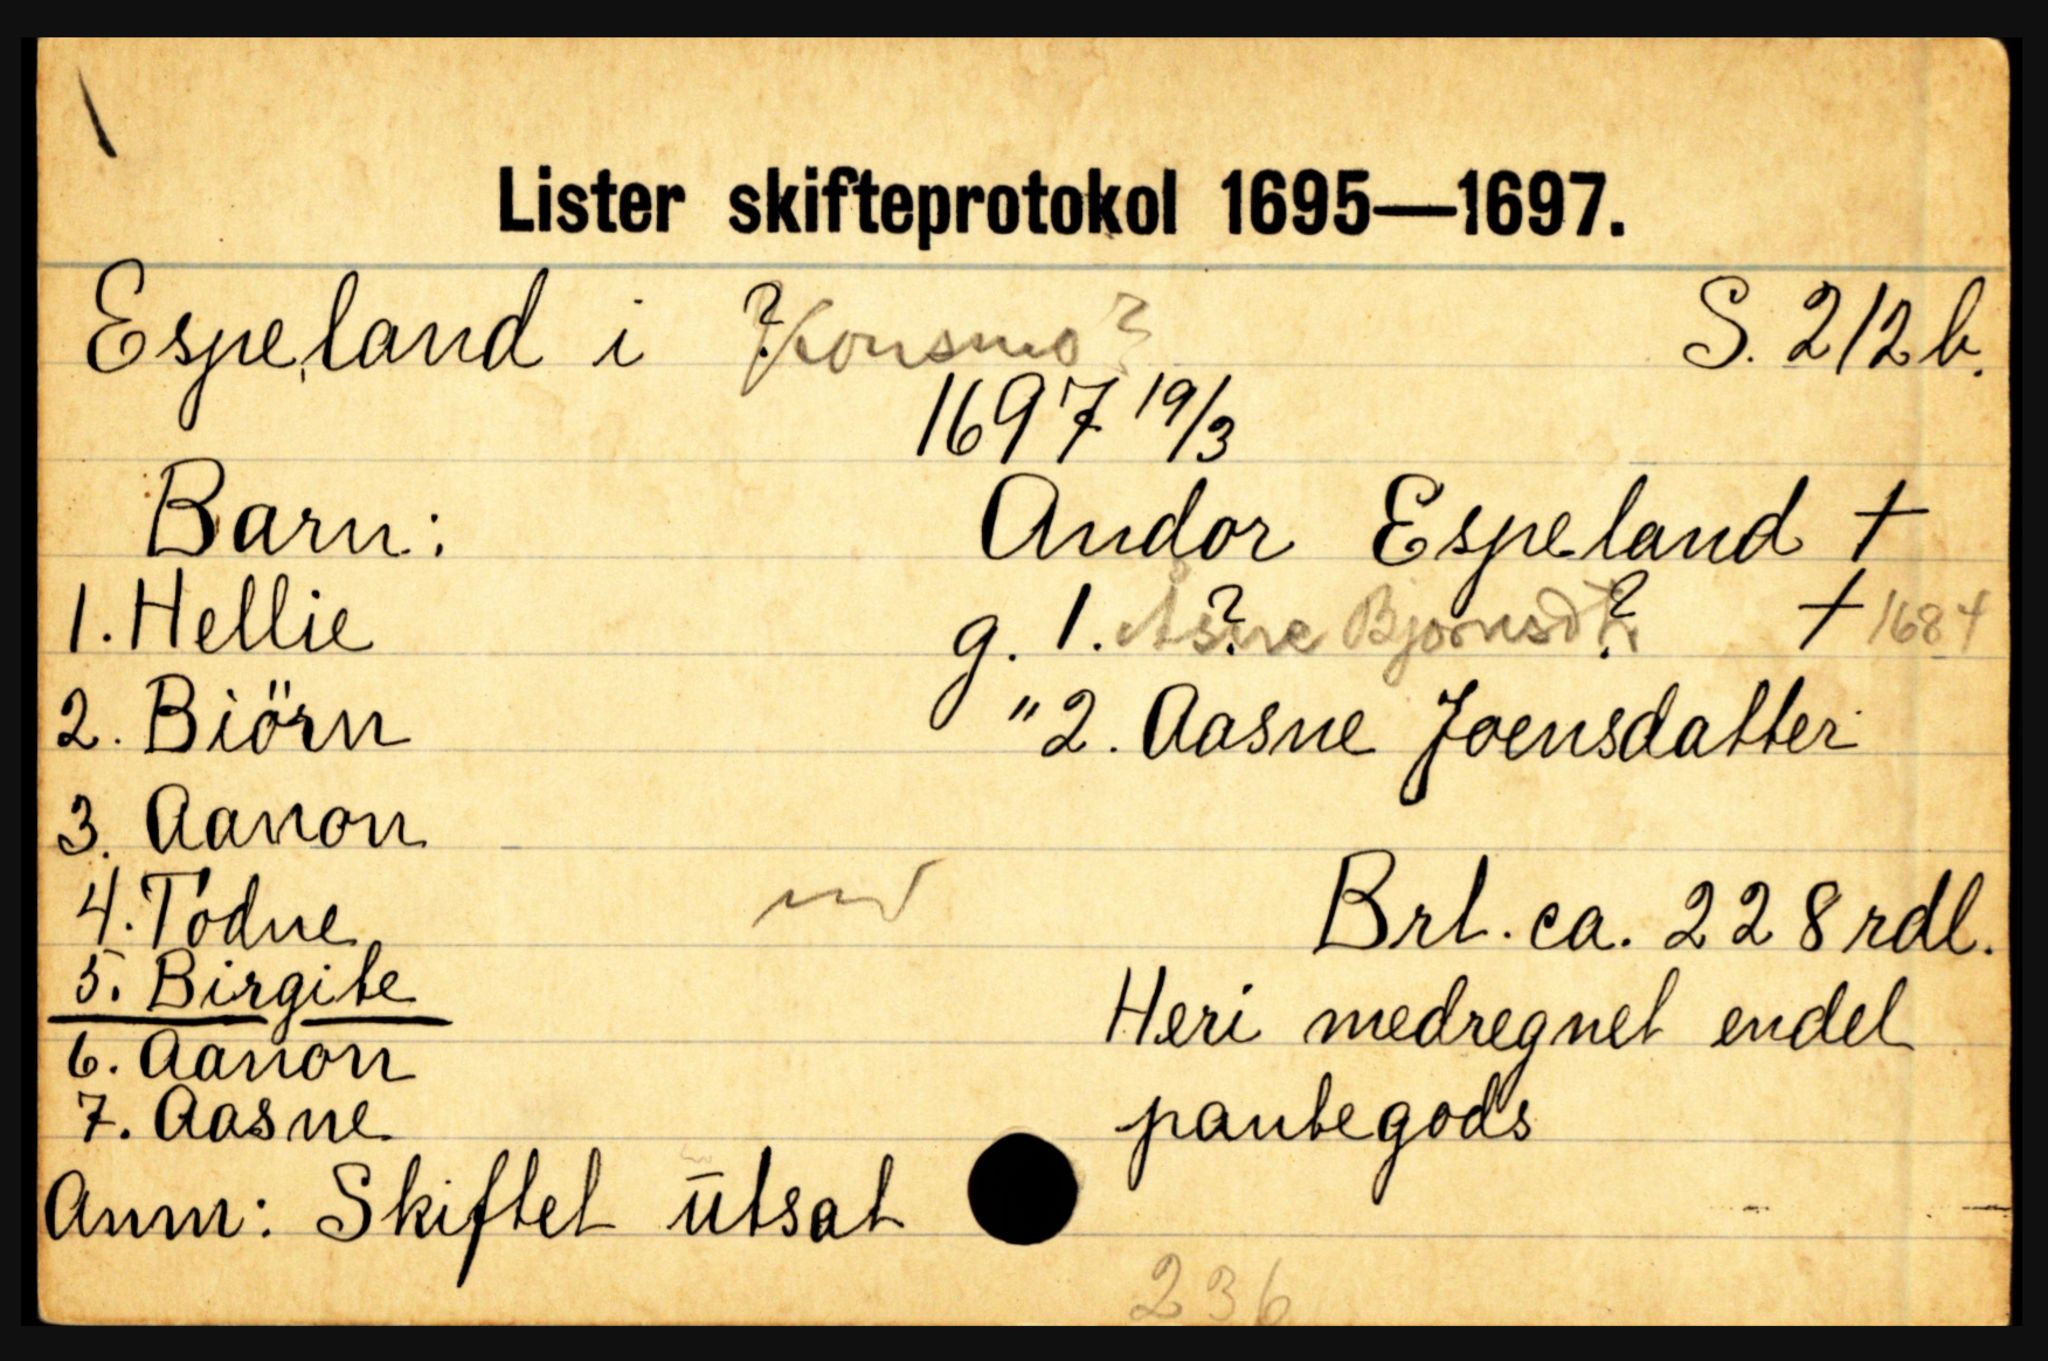 Lister skifteprotokol 1695—1697.
Espeland i ? Konsmo? S. 212b.
1697 19/3
Barn: Andor Espeland †
1. Hellie g. 1. ? Åsne Bjørnsdt. ? † 1684
2. Biörn " 2. Aasne Joensdatter
3. Aanon
4. Todne Brt. ca. 228 rdl.
5. Birgite Heri medregnet endel
6. Aanon
7. Aasne pantegods
Anm: Skiftet ūtsat
236